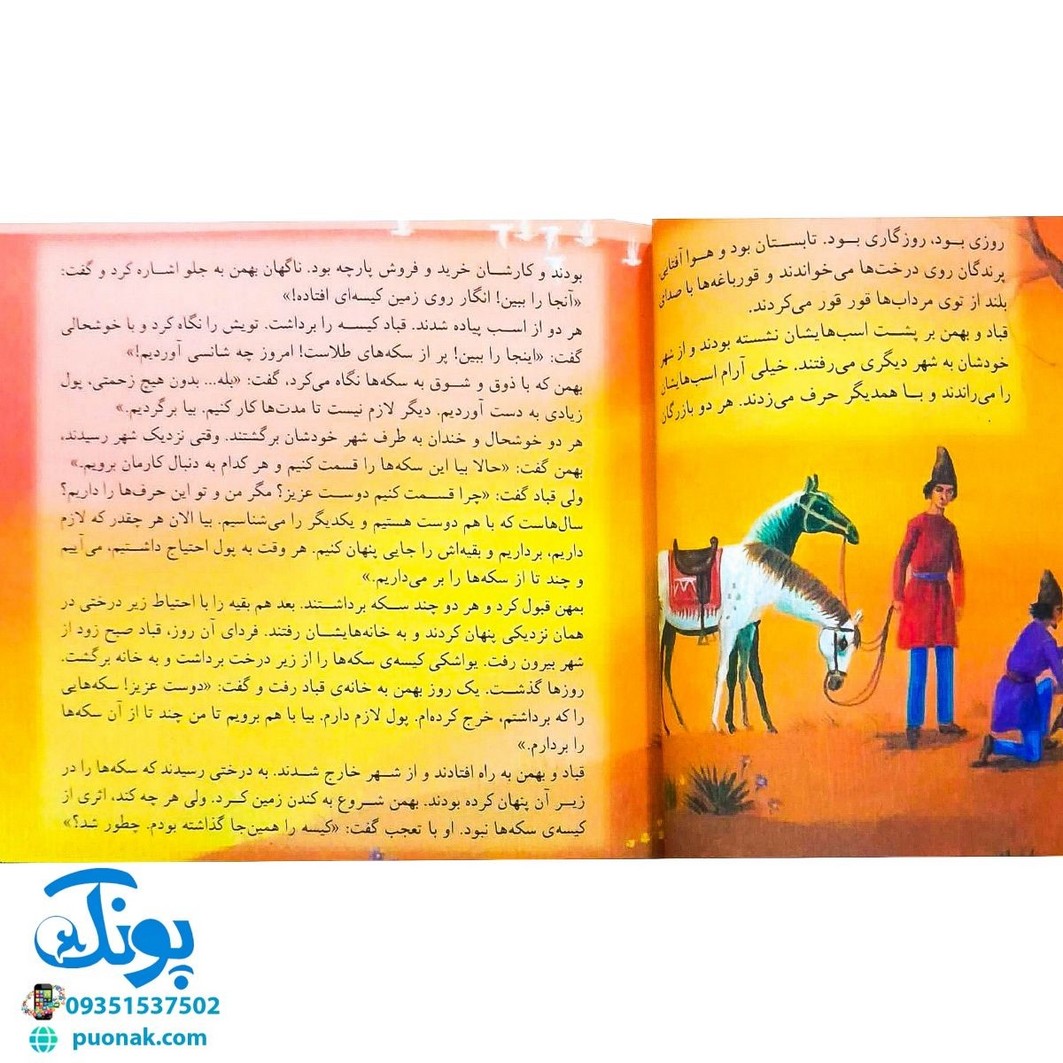 روزی بود، روزگاری بود. تابستان بود و هوا آفتابی.
پرندگان روی درخت‌ها می‌خواندند و قورباغه‌ها با صدای
بلند از توی مرداب‌ها قور قور می‌کردند.
قباد و بهمن بر پشت اسب‌هایشان نشسته بودند و از شهر
خودشان به شهر دیگری می‌رفتند. خیلی آرام اسب‌هایشان
را می‌راندند و با همدیگر حرف می‌زدند. هر دو بازرگان
بودند و کارشان خرید و فروش پارچه بود. ناگهان بهمن به جلو اشاره کرد و گفت:
«آنجا را ببین! انگار روی زمین کیسه‌ای افتاده!»
هر دو از اسب پیاده شدند. قباد کیسه را برداشت. تویش را نگاه کرد و با خوشحالی
گفت: «اینجا را ببین! پر از سکه‌های طلاست! امروز چه شانسی آوردیم!»
بهمن که با ذوق و شوق به سکه‌ها نگاه می‌کرد، گفت: «بله... بدون هیچ زحمتی، پول
زیادی به دست آوردیم. دیگر لازم نیست تا مدت‌ها کار کنیم. بیا برگردیم.»
هر دو خوشحال و خندان به طرف شهر خودشان برگشتند. وقتی نزدیک شهر رسیدند،
بهمن گفت: «حالا بیا این سکه‌ها را قسمت کنیم و هر کدام به دنبال کارمان برویم.»
ولی قباد گفت: «چرا قسمت کنیم دوست عزیز؟ مگر من و تو این حرف‌ها را داریم؟
سال‌هاست که با هم دوست هستیم و یکدیگر را می‌شناسیم. بیا الان هر چقدر که لازم
داریم، برداریم و بقیه‌اش را جایی پنهان کنیم. هر وقت به پول احتیاج داشتیم، می‌آییم
و چند تا از سکه‌ها را بر می‌داریم.»
بمهن قبول کرد و هر دو چند سکه برداشتند. بعد هم بقیه را با احتیاط زیر درختی در
همان نزدیکی پنهان کردند و به خانه‌هایشان رفتند. فردای آن روز، قباد صبح زود از
شهر بیرون رفت. یواشکی کیسه‌ی سکه‌ها را از زیر درخت برداشت و به خانه برگشت.
روزها گذشت. یک روز بهمن به خانه‌ی قباد رفت و گفت: «دوست عزیز! سکه‌هایی
را که برداشتم، خرج کرده‌ام. پول لازم دارم. بیا با هم برویم تا من چند تا از آن سکه‌ها
را بردارم.»
قباد و بهمن به راه افتادند و از شهر خارج شدند. به درختی رسیدند که سکه‌ها را در
زیر آن پنهان کرده بودند. بهمن شروع به کندن زمین کرد. ولی هر چه کند، اثری از
کیسه‌ی سکه‌ها نبود. او با تعجب گفت: «کیسه را همین‌جا گذاشته بودم. چطور شد؟»
پونک
09351537502
puonak.com